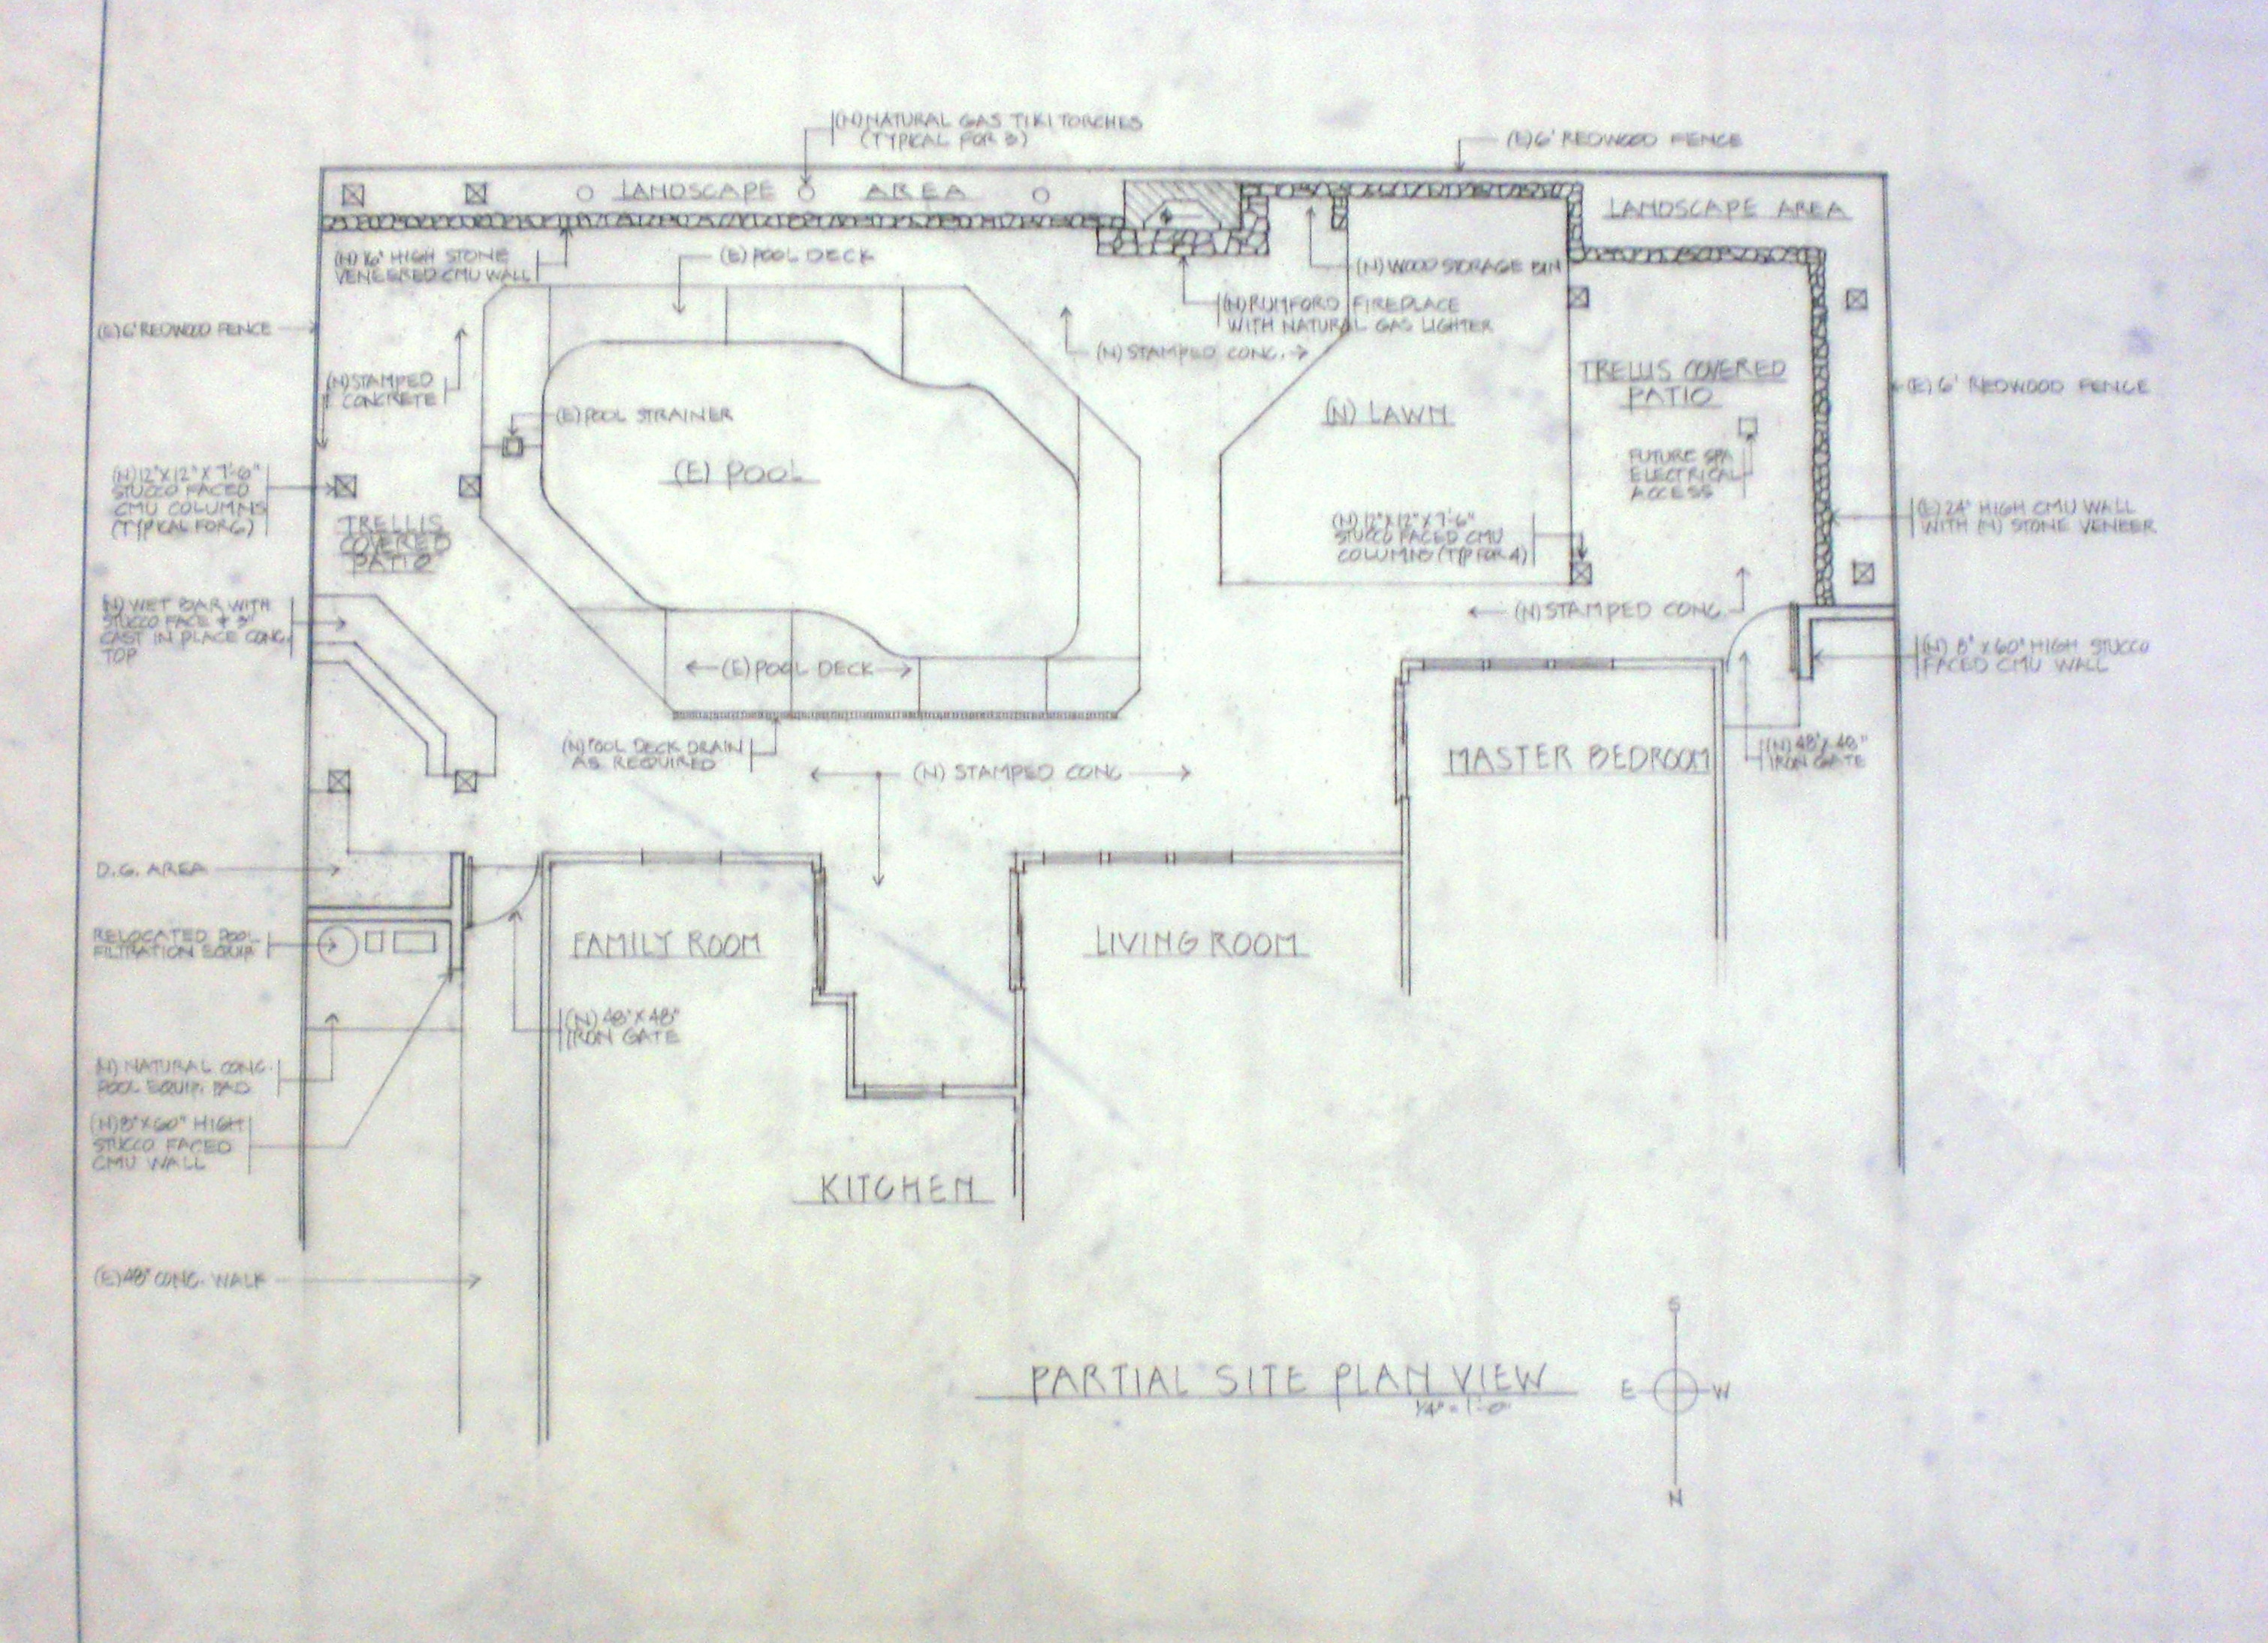 (N) NATURAL GAS TIKI TORCHES
(TYPICAL FOR 3)
(E) 6' REDWOOD FENCE
LANDSCAPE AREA
LANDSCAPE AREA
(N) 16" HIGH STONE
VENEERED CMU WALL
(E) POOL DECK
(N) WOOD STORAGE BIN
(N) RUMFORD FIREPLACE
WITH NATURAL GAS LIGHTER
(E) 6' REDWOOD FENCE
(N) STAMPED CONC.
(N) STAMPED
CONCRETE
TRELLIS COVERED
PATIO
(E) 6' REDWOOD FENCE
(E) POOL STRAINER
(N) LAWN
(E) POOL
FUTURE SPA
ELECTRICAL
ACCESS
(N) 12"X12"X7'-6"
STUCCO FACED
CMU COLUMNS
(TYPICAL FOR 6)
TRELLIS
COVERED
PATIO
(N) 12"X12"X7'-6"
STUCCO FACED CMU
COLUMNS (TYP FOR 4)
(E) 24" HIGH CMU WALL
WITH (N) STONE VENEER
(N) WET BAR WITH
STUCCO FACE & 3"
CAST IN PLACE CONC.
TOP
(N) STAMPED CONC.
(N) 8" X 60" HIGH STUCCO
FACED CMU WALL
(E) POOL DECK
(N) POOL DECK DRAIN
AS REQUIRED
(N) STAMPED CONC
MASTER BEDROOM
(N) 48" X 48"
IRON GATE
D.G. AREA
RELOCATED POOL
FILTRATION EQUIP.
FAMILY ROOM
LIVING ROOM
(N) 48" X 48"
IRON GATE
(N) NATURAL CONC.
POOL EQUIP. PAD
(N) 8" X 60" HIGH
STUCCO FACED
CMU WALL
KITCHEN
(E) 48" CONC. WALK
PARTIAL SITE PLAN VIEW
1/4" = 1'-0"
S
E W
N